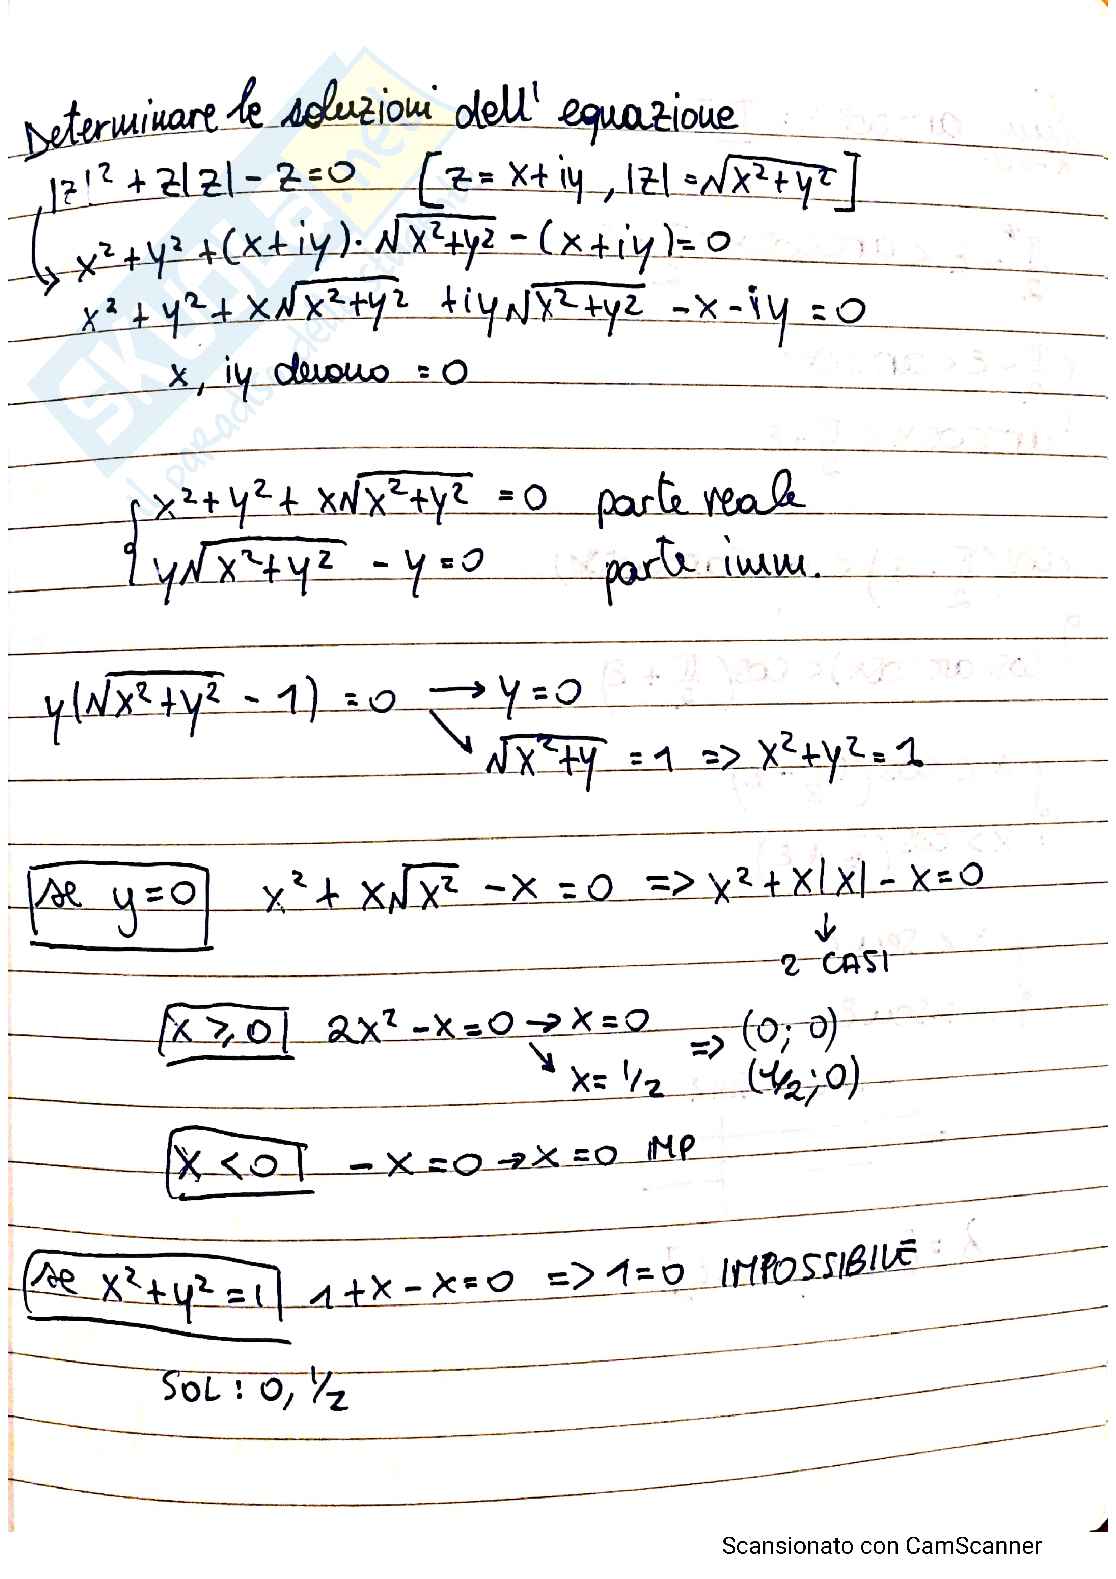 Determinare le soluzioni dell' equazione
|z|² + z|z| - z = 0 [z = x + iy , |z| = √x²+y²]
x² + y² + (x + iy) · √x²+y² - (x + iy) = 0
x² + y² + x√x²+y² + iy√x²+y² - x - iy = 0
x, iy devono = 0
x² + y² + x√x²+y² = 0 parte reale
y√x²+y² - y = 0 parte imm.
y(√x²+y² - 1) = 0 → y = 0
↘ √x²+y = 1 => x² + y² = 1
se y = 0 x² + x√x² - x = 0 => x² + x|x| - x = 0
↓
2 CASI
x ⩾ 0 2x² - x = 0 → x = 0 => (0; 0)
↘ x = 1/2 (1/2; 0)
x < 0 - x = 0 → x = 0 IMP
se x² + y² = 1 1 + x - x = 0 => 1 = 0 IMPOSSIBILE
SOL : 0, 1/2
SKUOLA.net
il paradiso dello studente
Scansionato con CamScanner